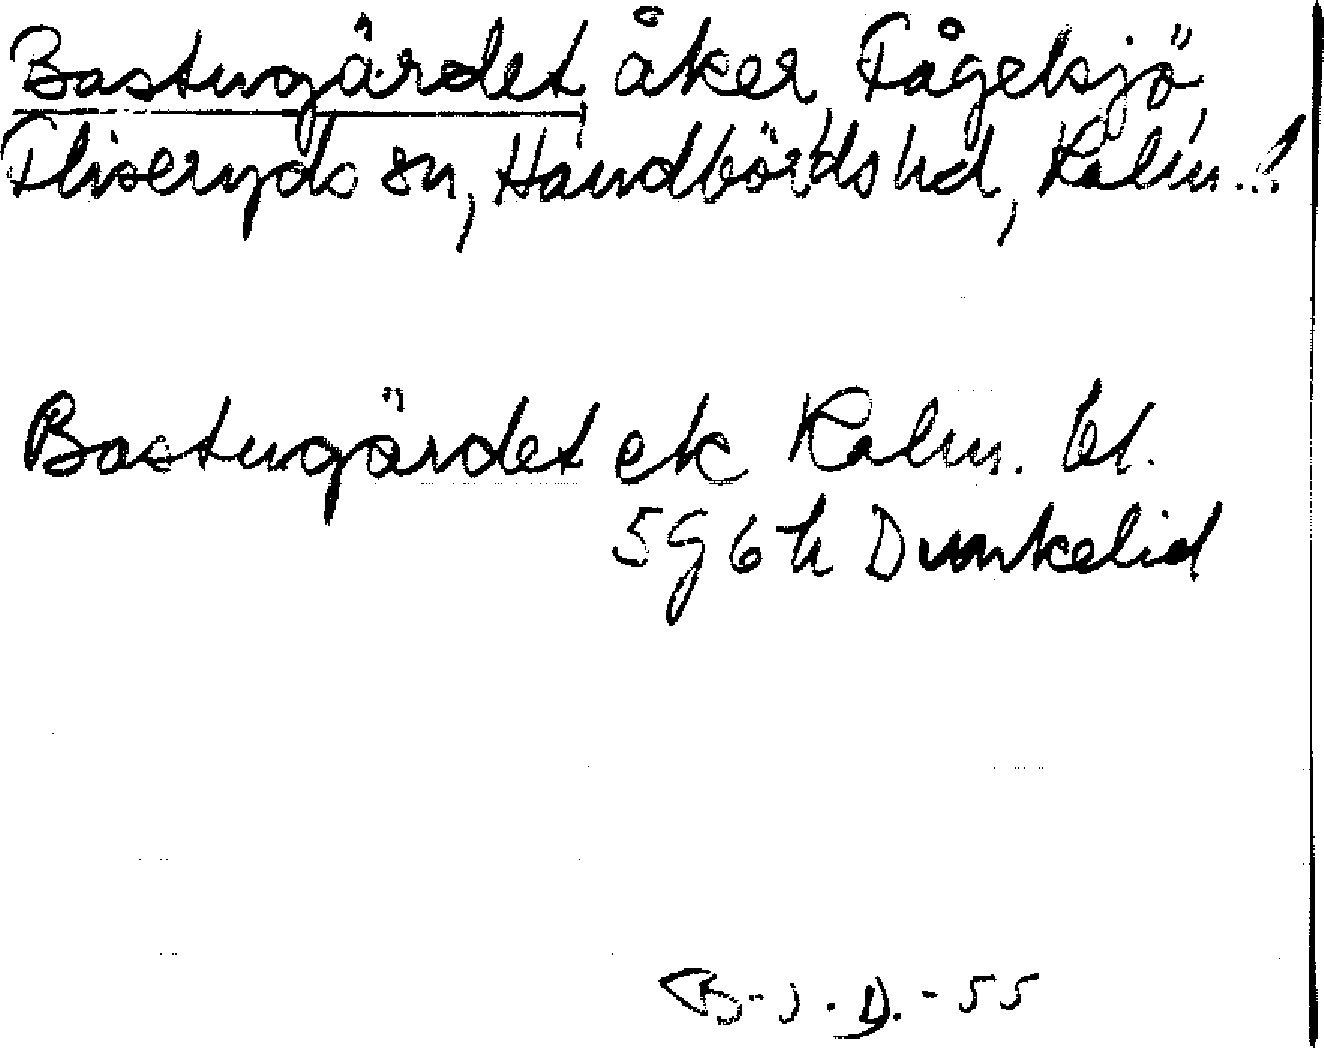 Bastugärdet, åker, Fågelsjö,
Fliseryds sn, Handbörds hd, Kalm. l
Bastugärdet ek Kalm. bl.
5G6h Dunkelid
B-J.D.-55